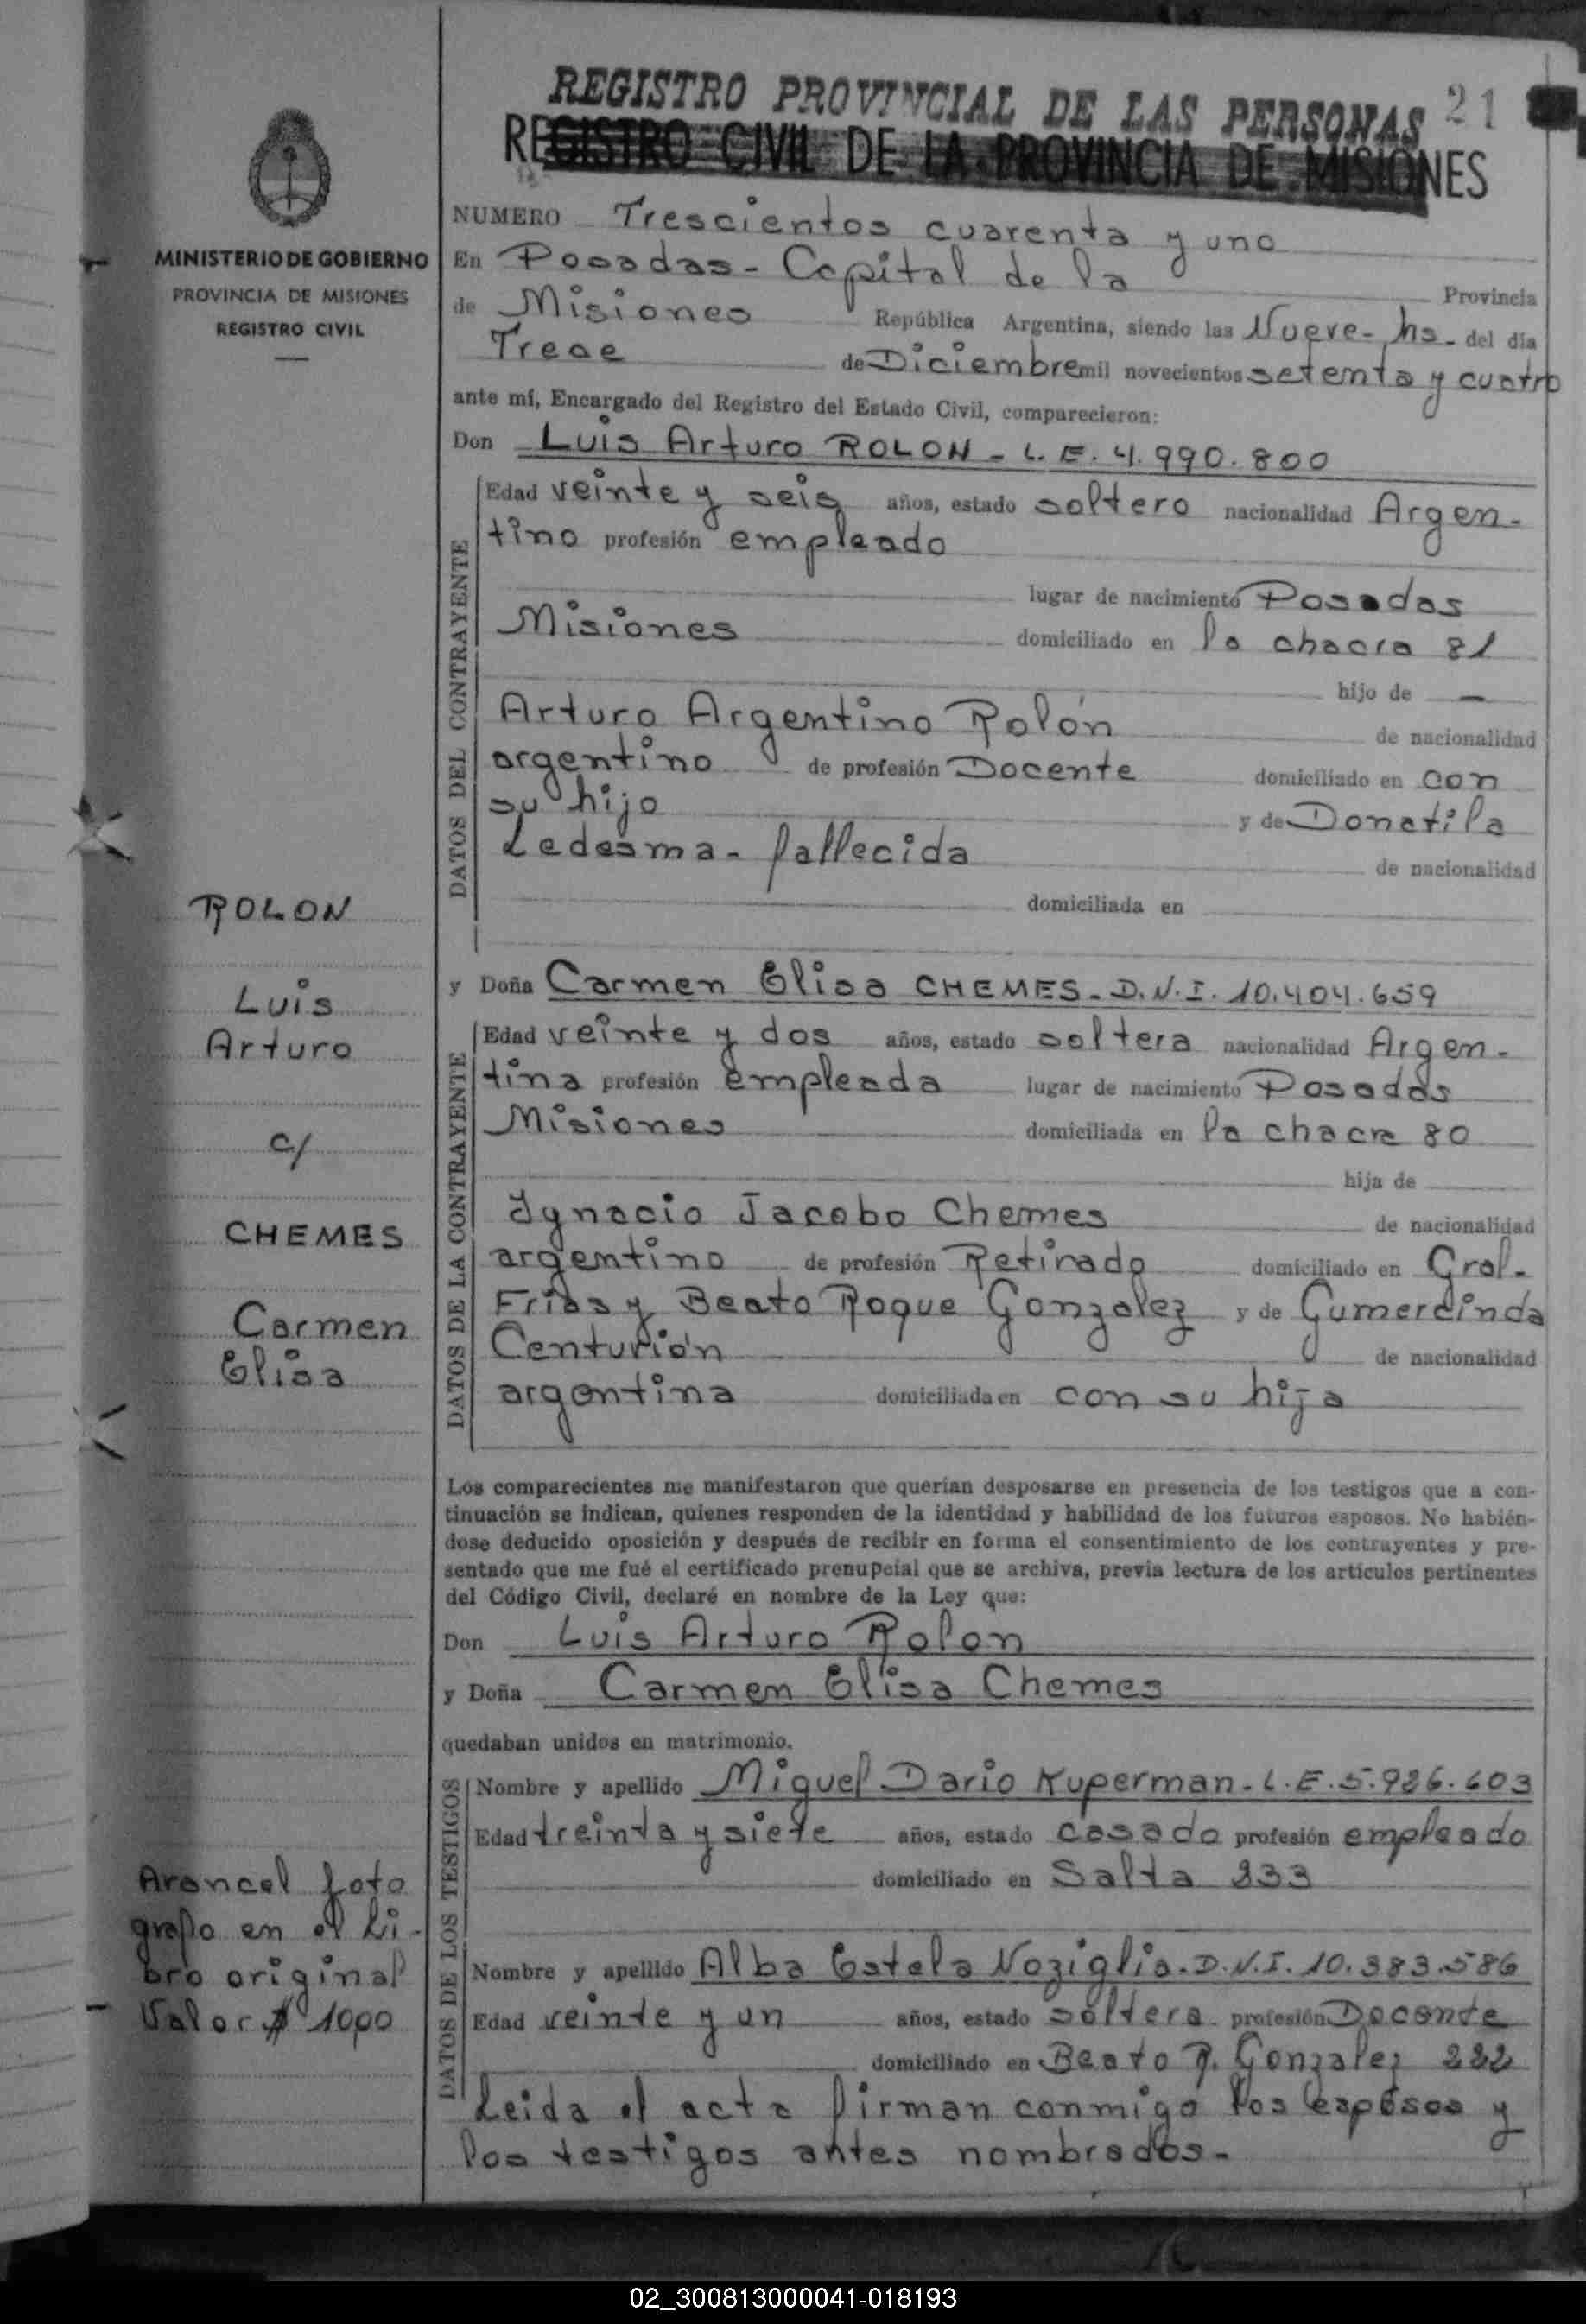 REGISTRO PROVINCIAL DE LAS PERSONAS 21
REGISTRO CIVIL DE LA PROVINCIA DE MISIONES
MINISTERIO DE GOBIERNO
PROVINCIA DE MISIONES
REGISTRO CIVIL
NUMERO Trescientos cuarenta y uno
En Posadas - Capital de la Provincia
de Misiones República Argentina, siendo las Nueve - hs - del día
Trece de Diciembre mil novecientos setenta y cuatro
ante mí, Encargado del Registro del Estado Civil, comparecieron:
Don Luis Arturo ROLON - L. E. 4.990.800
DATOS DEL CONTRAYENTE
Edad veinte y seis años, estado soltero nacionalidad Argen-
tino profesión empleado
lugar de nacimiento Posadas
Misiones domiciliado en la chacra 81
hijo de -
Arturo Argentino Rolón de nacionalidad
argentino de profesión Docente domiciliado en con
su hijo y de Donatila
Ledesma - fallecida de nacionalidad
domiciliada en
y Doña Carmen Elisa CHEMES - D. N. I. 10.404.659
DATOS DE LA CONTRAYENTE
Edad veinte y dos años, estado soltera nacionalidad Argen-
tina profesión empleada lugar de nacimiento Posadas
Misiones domiciliada en la chacra 80
hija de
Ignacio Jacobo Chemes de nacionalidad
argentino de profesión Retirado domiciliado en Gral.
Frias y Beato Roque Gonzalez y de Gumercinda
Centurión de nacionalidad
argentina domiciliada en con su hija
Los comparecientes me manifestaron que querían desposarse en presencia de los testigos que a con-
tinuación se indican, quienes responden de la identidad y habilidad de los futuros esposos. No habién-
dose deducido oposición y después de recibir en forma el consentimiento de los contrayentes y pre-
sentado que me fué el certificado prenupcial que se archiva, previa lectura de los artículos pertinentes
del Código Civil, declaré en nombre de la Ley que:
Don Luis Arturo Rolon
y Doña Carmen Elisa Chemes
quedaban unidos en matrimonio.
DATOS DE LOS TESTIGOS
Nombre y apellido Miguel Dario Kuperman - L. E. 5.926.603
Edad treinta y siete años, estado casado profesión empleado
domiciliado en Salta 333
Nombre y apellido Alba Estela Noziglia - D. N. I. 10.383.586
Edad veinte y un años, estado soltera profesión Docente
domiciliado en Beato R. Gonzalez 222
Leida el acta firman conmigo los esposos y
los testigos antes nombrados -
ROLON
Luis
Arturo
c/
CHEMES
Carmen
Elisa
Arancel foto
grafo en el Li-
bro original
Valor $ 1000
02_300813000041-018193